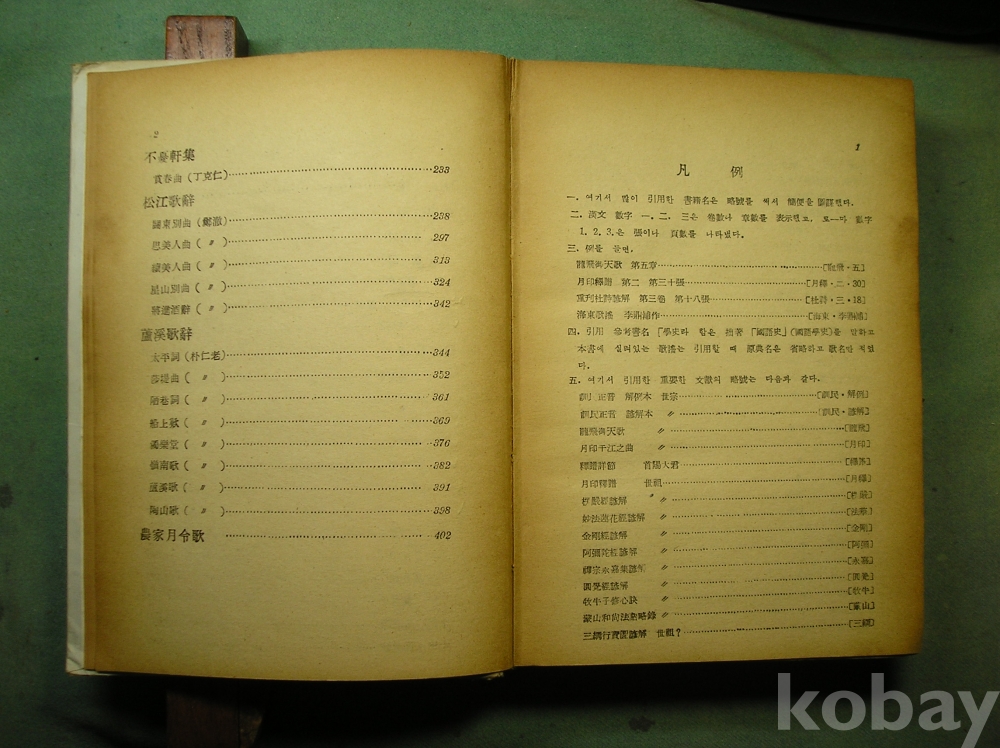 2
不憂軒集
賞春曲 (丁克仁)……233
松江歌辭
關東別曲 (鄭澈)……238
思美人曲 ( 〃 )……297
續美人曲 ( 〃 )……313
星山別曲 ( 〃 )……324
將進酒辭 ( 〃 )……342
蘆溪歌辭
太平詞 (朴仁老)……344
莎堤曲 ( 〃 )……352
陋巷詞 ( 〃 )……361
船上歎 ( 〃 )……369
獨樂堂 ( 〃 )……376
嶺南歌 ( 〃 )……382
蘆溪歌 ( 〃 )……391
陶山歌 ( 〃 )……398
農家月令歌 ……402
1
凡 例
一. 여기서 많이 引用한 書籍名은 略號를 써서 簡便을 圖謀했다.
二. 漢文 數字 一. 二. 三은 卷數나 章數를 表示했고, 로—마 數字
1. 2. 3.은 張이나 頁數를 나타냈다.
三. 例를 들면,
龍飛御天歌 第五章……[龍飛·五]
月印釋譜 第二 第三十張……[月釋·二·30]
重刊杜詩諺解 第三卷 第十八張……[杜詩·三·18]
海東歌謠 李鼎輔作……[海東·李鼎輔]
四. 引用 參考書名 「學史라 함은 拙著 「國語史」(國語學史)를 말하고
本書에 실려있는 歌謠는 引用할 때 原典名은 省略하고 歌名만 적었
다.
五. 여기서 引用한 重要한 文獻의 略號는 다음과 같다.
訓民正音 解例本 世宗……[訓民·解例]
訓民正音 諺解本 〃……[訓民·諺解]
龍飛御天歌 〃……[龍飛]
月印千江之曲 〃……[月印]
釋譜詳節 首陽大君……[釋譜]
月印釋譜 世祖……[月釋]
楞嚴經諺解 〃……[楞嚴]
妙法蓮花經諺解 〃……[法華]
金剛經諺解 〃……[金剛]
阿彌陀經諺解 〃……[阿彌]
禪宗永嘉集諺解 〃……[永嘉]
圓覺經諺解 〃……[圓覺]
牧牛子修心訣 〃……[牧牛]
蒙山和尙法語略錄 〃……[蒙山]
三綱行實圖諺解 世祖?……[三綱]
kobay